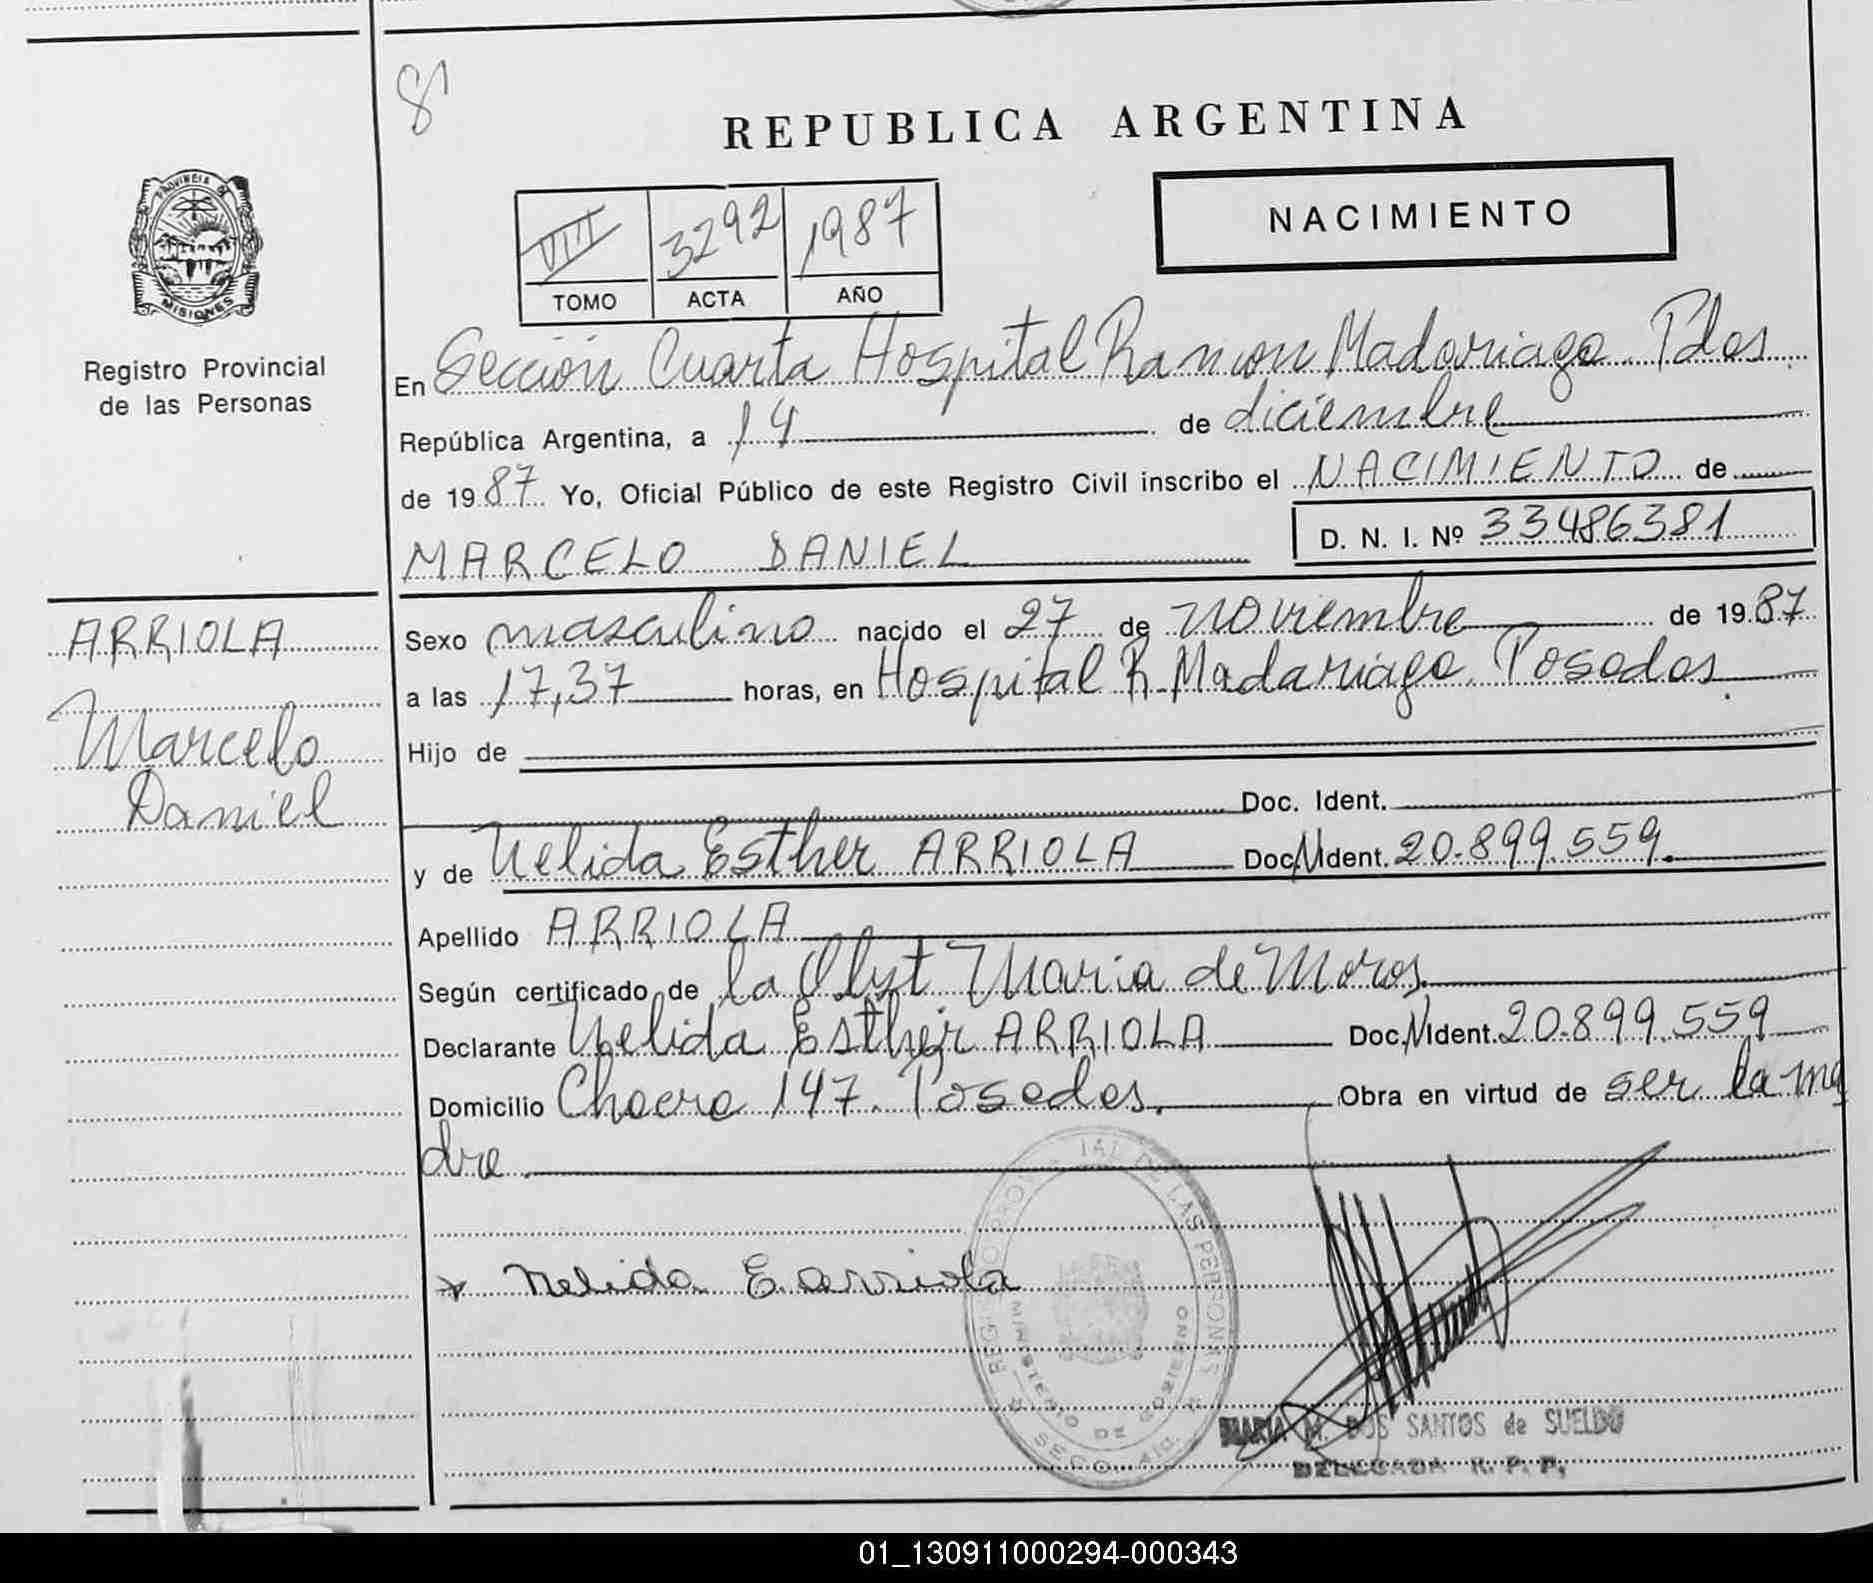 8
REPUBLICA ARGENTINA
PROVINCIA DE
MISIONES
Registro Provincial
de las Personas
VIII 3292 1987
TOMO ACTA AÑO
NACIMIENTO
En Sección Cuarta Hospital Ramon Madariaga. Pdas.
República Argentina, a 14 de diciembre
de 1987 Yo, Oficial Público de este Registro Civil inscribo el NACIMIENTO de
MARCELO DANIEL D. N. I. Nº 33486381
ARRIOLA
Marcelo
Daniel
Sexo masculino nacido el 27 de noviembre de 1987
a las 17,37 horas, en Hospital R. Madariaga. Posadas.
Hijo de
Doc. Ident.
y de Nelida Esther ARRIOLA Doc. Ident. 20.899.559.
Apellido ARRIOLA
Según certificado de la Obst Maria de Moros.
Declarante Nelida Esther ARRIOLA Doc. Ident. 20.899.559
Domicilio 147. Posadas. Obra en virtud de ser la ma
dre.
Nelida E. arriola
REGISTRO PROVINCIAL DE LAS PERSONAS
MINISTERIO DE GOBIERNO
MARIA M. DOS SANTOS de SUELDO
DELEGADA R. P. P.
01_130911000294-000343